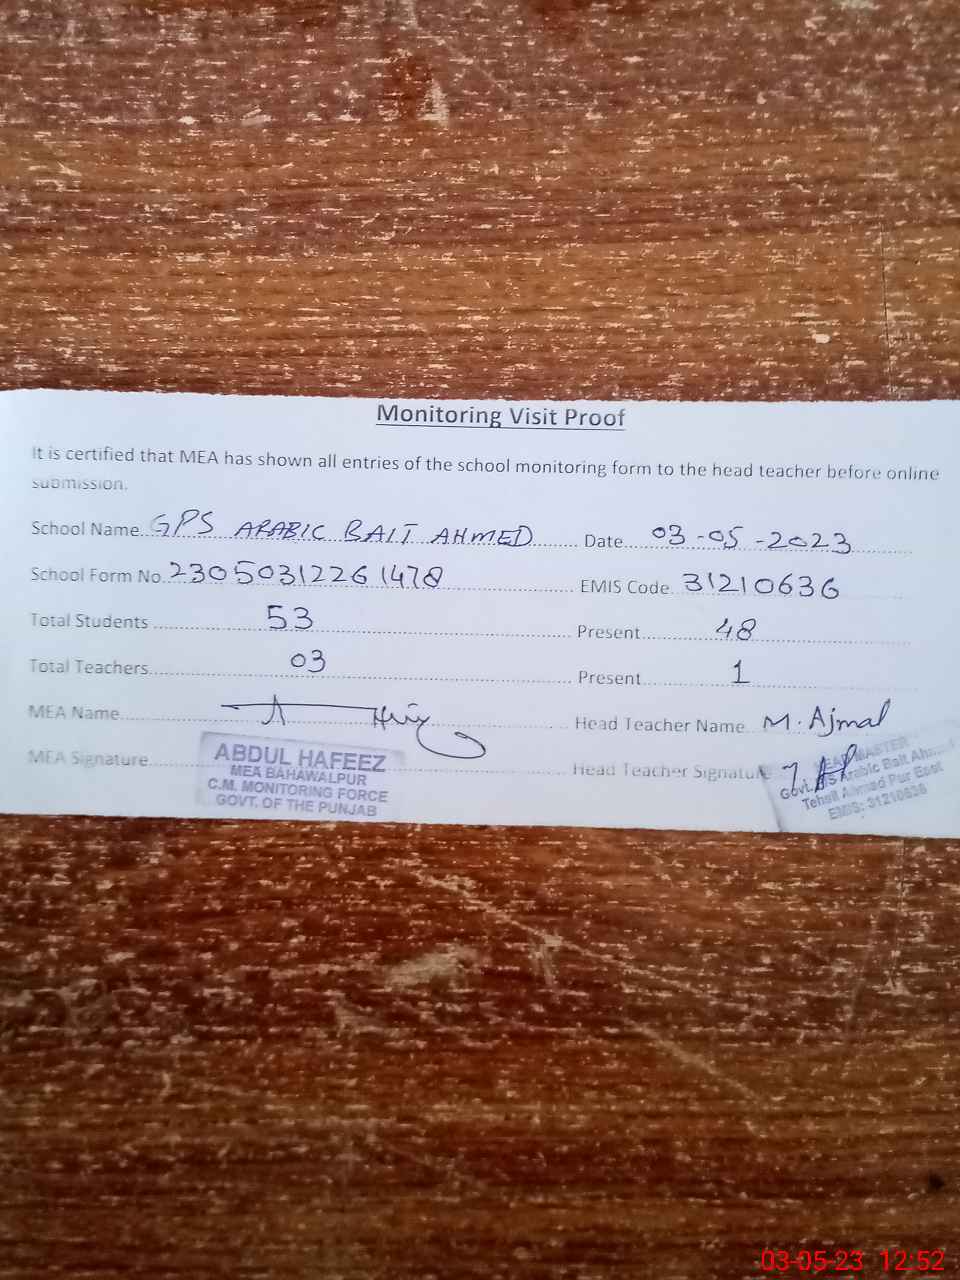 Monitoring Visit Proof
It is certified that MEA has shown all entries of the school monitoring form to the head teacher before online
submission.
School Name GPS ARABIC BAIT AHMED Date 03-05-2023
School Form No. 23050312261478 EMIS Code 31210636
Total Students 53 Present 48
Total Teachers 03 Present 1
MEA Name Head Teacher Name M. Ajmal
MEA Signature Head Teacher Signature
ABDUL HAFEEZ
MEA BAHAWALPUR
C.M. MONITORING FORCE
GOVT. OF THE PUNJAB
HEAD MASTER
Govt. Arabic Bait
Tehsil Ahmad Pur East
EMIS: 31210636
03-05-23 12:52